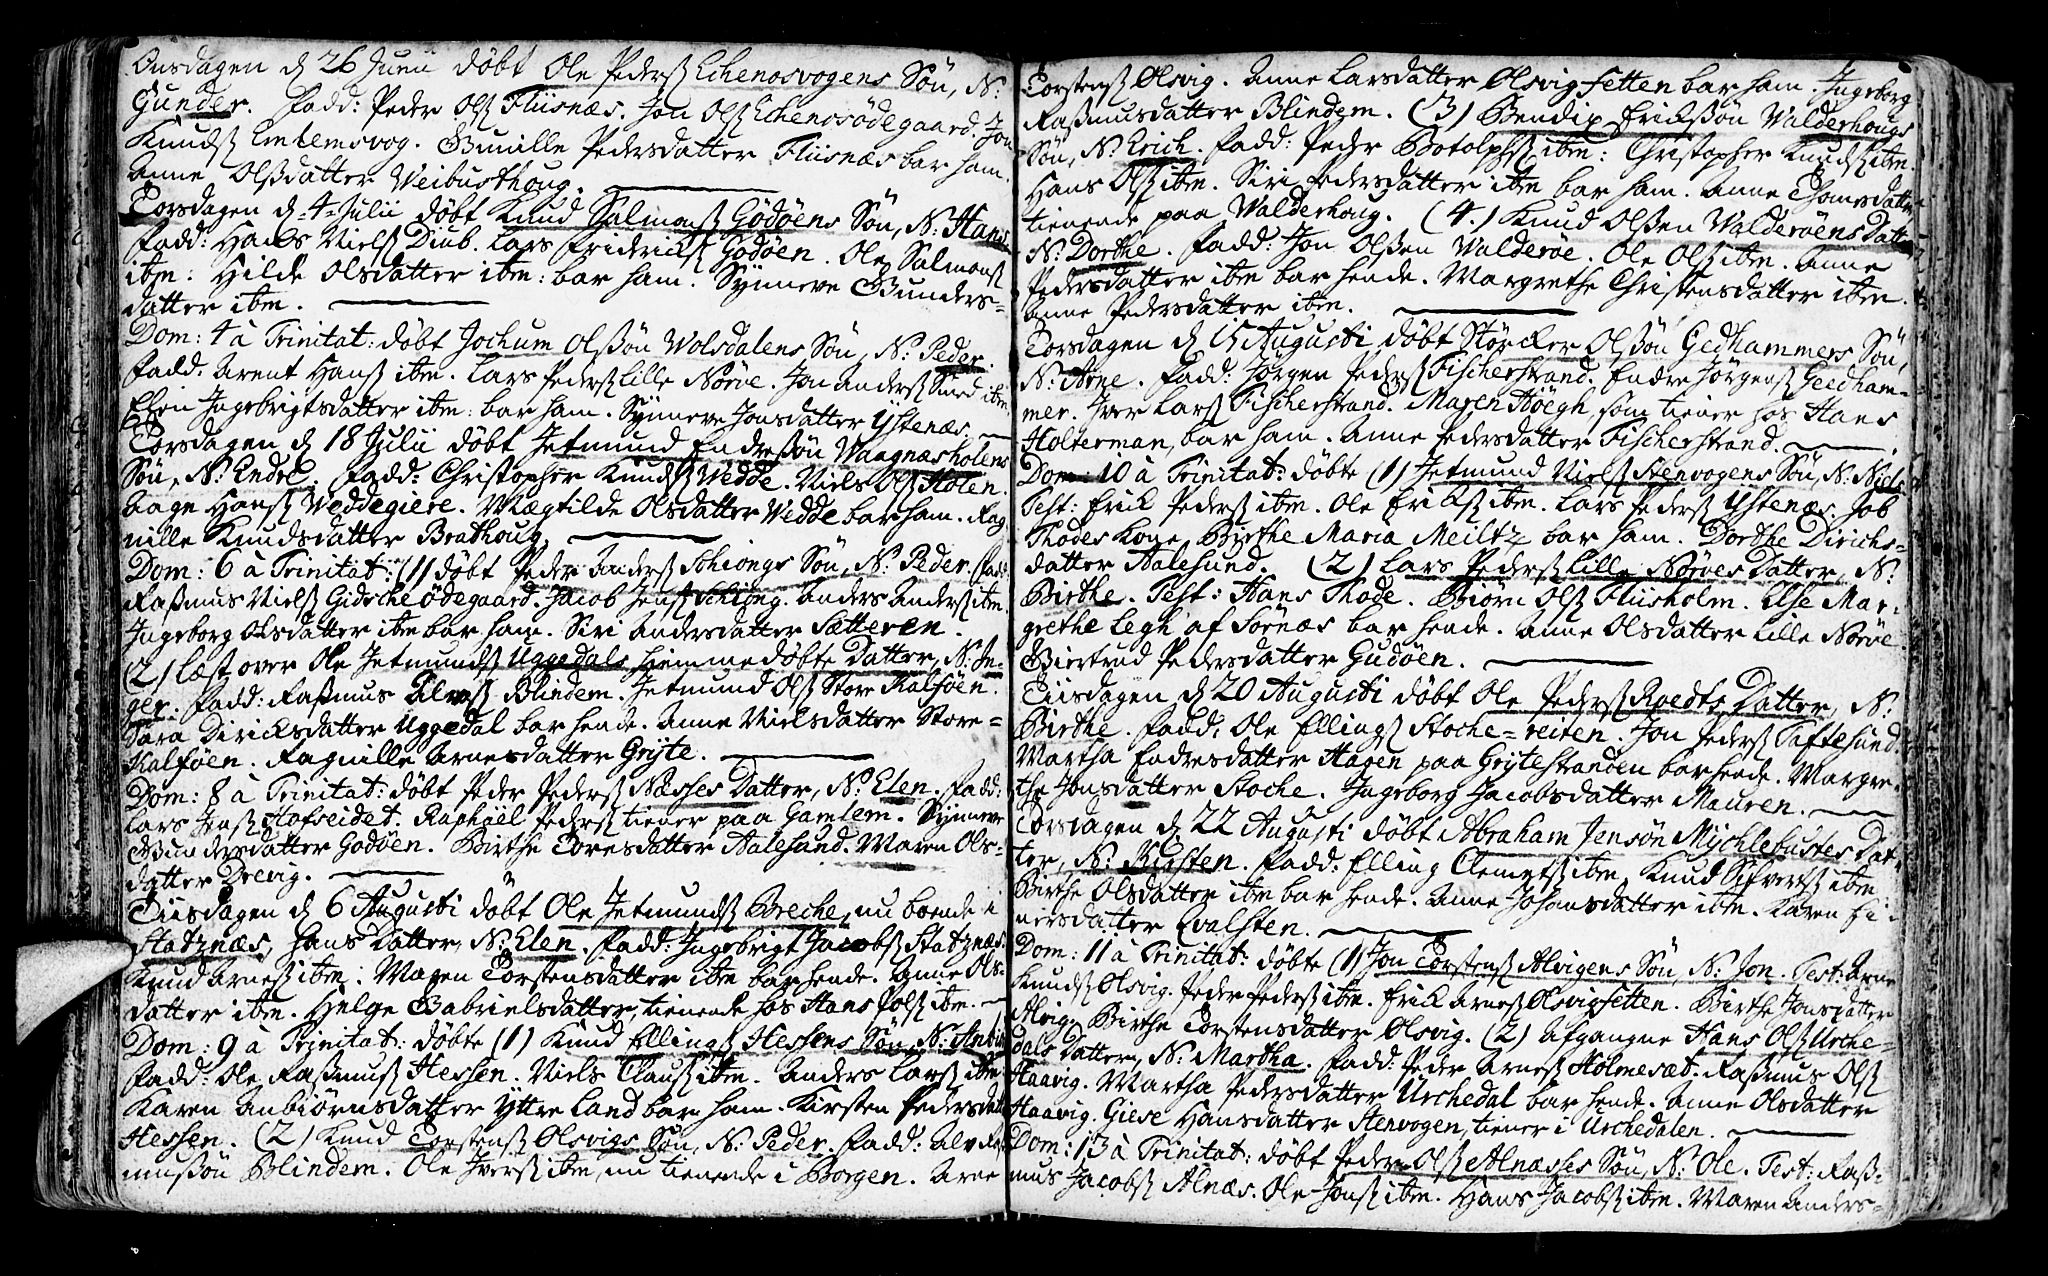 Onsdagen d 26 Junii døbt Ole Pederß Echenosvogens Søn, N:
Gunder. Fadd: Peder Olß Fliisnæs. Jon Olß Echenosødegaard. Jon
Knudß Emlemsvog. Gunille Pedersdatter Fliisnæs bar ham.
Anne Olßdatter Weibusthoug.
Torsdagen d 4 Julii døbt Knud Salmonß Godøens Søn, N: Hans
Fadd: Hans Nielß Diub. Lars Friderichß Godøen. Ole Salmonß
ibm: Hilde Olsdatter ibm: bar ham. Synneve Gunders-
datter ibm.
Dom: 4 à Trinitat: døbt Jochum Olßøn Wolsdalens Søn, N: Peder
Fadd: Arent Hanß ibm. Lars Pederß Lille Nørve. Jon Anderß Smed ibm.
Elen Ingebrigtsdatter ibm: bar ham. Synneve Jonsdatter Ystenæs.
Torsdagen d 18 Julii døbt Jetmund Endreßøn Waagnæsholens
Søn, N: Endre. Fadd: Christopher Knudß Wedde. Niels Olß Holen.
Aage Hanß Weddegiere. Magtilde Olsdatter Wedde bar ham. Rag
nille Knudsdatter Brathoug.
Dom: 6 à Trinitat: (1) døbt Peder Anderß Schiongs Søn, N: Peder. Fadd:
Raßmus Nielß Gidsche ødegaard. Jacob Jenß Schiong. Anders Anderß ibm.
Ingeborg Olsdatter ibm bar ham. Siri Andersdatter Sætteren.
(2) læst over Ole Jetmundß Uggedals hiemmedøbte Datter, N: In-
ger. Fadd: Raßmus Alvß Blindem. Jetmund Olß Store Kalføen.
Sara Diricksdatter Uggedal bar hende. Anne Nielsdatter Store-
Kalføen. Ragnille Arnesdatter Gryte.
Dom: 8 à Trinitat: døbt Peder Pederß Næsses Datter, N: Elen. Fadd:
Lars Jenß Hofseidet. Raphaël Pederß tiener paa Gamlem. Synneve
Gundersdatter Godøen. Birthe Toresdatter Aalesund. Maren Ols-
datter Drevig.
Tiisdagen d 6 Augusti døbt Ole Jetmundß Breche, nu boende i
Statznæs, hans Datter, N: Elen. Fadd: Ingebrigt Jacobß Statznæs.
Knud Arneß ibm: Magen Torstensdatter ibm bar hende. Anne Ols-
datter ibm. Helge Gabrielsdatter, tienende hos Hans Polß ibm.
Dom: 9 à Trinitat: døbte (1) Knud Ellingß Hessens Søn, N:
Fadd: Ole Raßmusß Hessen. Niels Clausß ibm. Anders Larß ibm
Karen Anbiørnsdatter Yttre Land bar ham. Kirsten Pedersdatt
Hessen. (2) Knud Torstenß Olsvigs Søn, N: Peder. Fadd: Alv Ra
mußøn Blindem. Ole Iverß ibm, nu tienende i Borgen. Arne
Torstenß Olsvig. Anne Larsdatter Olsvigsetten bar ham. Ingeborg
Raßmusdatter Blindem. (3) Bendix Erikßøn Walderhougs
Søn, N: Erich. Fadd: Peder Botolphß ibm: Christopher Knudß ibm.
Hans Olß ibm. Siri Pedersdatter ibm bar ham. Anne Thomsdatter
tienende paa Walderhoug. (4.) Knud Olßen Walderøens Datter
N: Dorthe. Fadd: Jon Olßen Walderøe. Ole Olß ibm. Anne
Pedersdatter ibm bar hende. Margrethe Christensdatter ibm.
Anne Pedersdatter ibm.
Torsdagen d 15 Augusti døbt Størcker Olßøn Gedhammers Søn,
N: Arne. Fadd: Jørgen Pederß Fischerstrand. Endre Jørgenß Geedham-
mer. Iver Larß Fischerstrand. Maren Høegh, som tiener hos Hans
Holterman, bar ham. Anne Pedersdatter Fischerstrand.
Dom: 10 à Trinitat: døbte (1) Jetmund Nielß Stenvogens Søn, N: Niels
Test: Erick Pederß ibm. Ole Erickß ibm. Lars Pederß Ystenæs. Job
Thodes Kone Birthe Maria Meiltz bar ham. Dorthe Dirichs-
datter Aalesund. (2) Lars Pederß Lille Nørves Datter, N:
Birthe. Test: Hans Thode. Biørn Olß Fliisholm. Else Mar-
grethe Legh af Sørnæs bar hende. Anne Olsdatter Lille Nørve.
Giertrud Pedersdatter Gudøen.
Tiisdagen d 20 Augusti døbt Ole Pederß Roedts Datter, N:
Birthe. Fadd: Ole Ellingß Stoche-reiten. Jon Pederß Taftesund
Martha Endresdatter Hagen paa Grytestranden bar hende. Margre-
the Jonsdatter Stoche. Ingeborg Jacobsdatter Mauren.
Torsdagen d 22 Augusti døbt Abraham Jensøn Mychlebustes Dat-
ter, N: Kirsten. Fadd: Elling Clemetß ibm. Knud Sifvertß ibm
Birthe Olsdatter ibm bar hende. Anne Johansdatter ibm. Karen Ei-
nersdatter Qvalsten.
Dom: 11 à Trinitat: døbte (1) Jon Torstenß Alvigens Søn, N: Jon. Test: Arne
Knudß Olsvig. Peder Pederß ibm. Erick Arneß Olsvigsetten. Birthe Jonsdatter
Alvig. Birthe Torstensdatter Olsvig. (2) Afgangne Hans Olß Urche-
dals Datter, N: Martha. Fadd: Peder Arneß Holmesæt. Raßmus Olß
Haavig. Martha Pedersdatter Urchedal bar hende. Anne Olsdatter
Haavig. Giese Hansdatter Stenvogen, tiener i Urchedalen.
Dom: 13 à Trinitat: døbt Peder Olß Alnæsses Søn, N: Ole. Test: Raß-
mus Jacobß Alnæs. Ole Jonß ibm. Hans Jacobß ibm. Maren Anders-